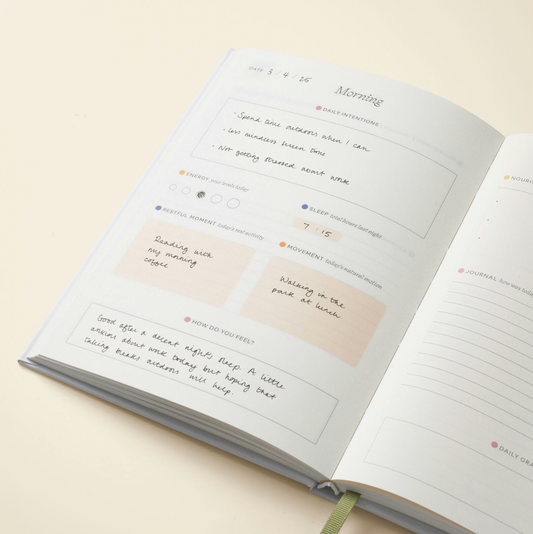 DATE 3 / 4 / 25
Morning
DAILY INTENTIONS
· Spend time outdoors when I can
· Less mindless screen time
· Not getting stressed about work
ENERGY your levels today
SLEEP total hours last night
7 : 15
RESTFUL MOMENT today's rest activity
MOVEMENT today's natural motion
Reading with
my morning
coffee
Walking in the
park at lunch
HOW DO YOU FEEL?
Good after a decent night's sleep. A little
anxious about work today but hoping that
taking breaks outdoors will help.
NOURI
JOURNAL how was toda
DAILY GRA